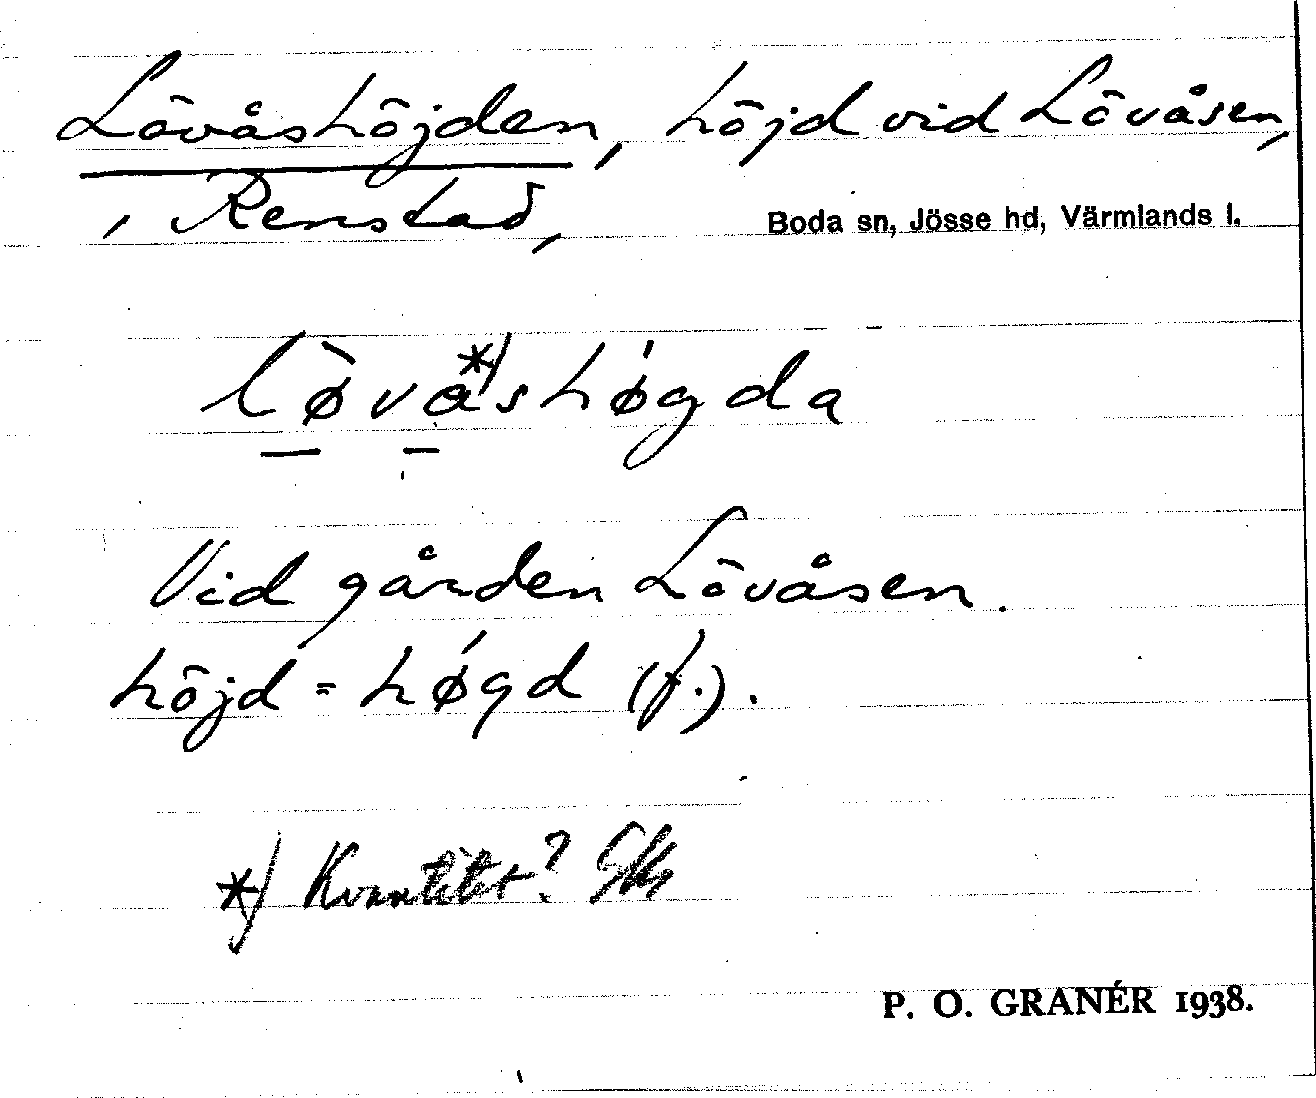 Lövåshöjden, höjd vid Lövåsen,
i Renstad, Boda sn, Jösse hd, Värmlands l.
lø̀vå*)shǿgda
Vid gården Lövåsen.
höjd = hǿgd (f.).
*) Kvantitet?
P. O. GRANÉR 1938.